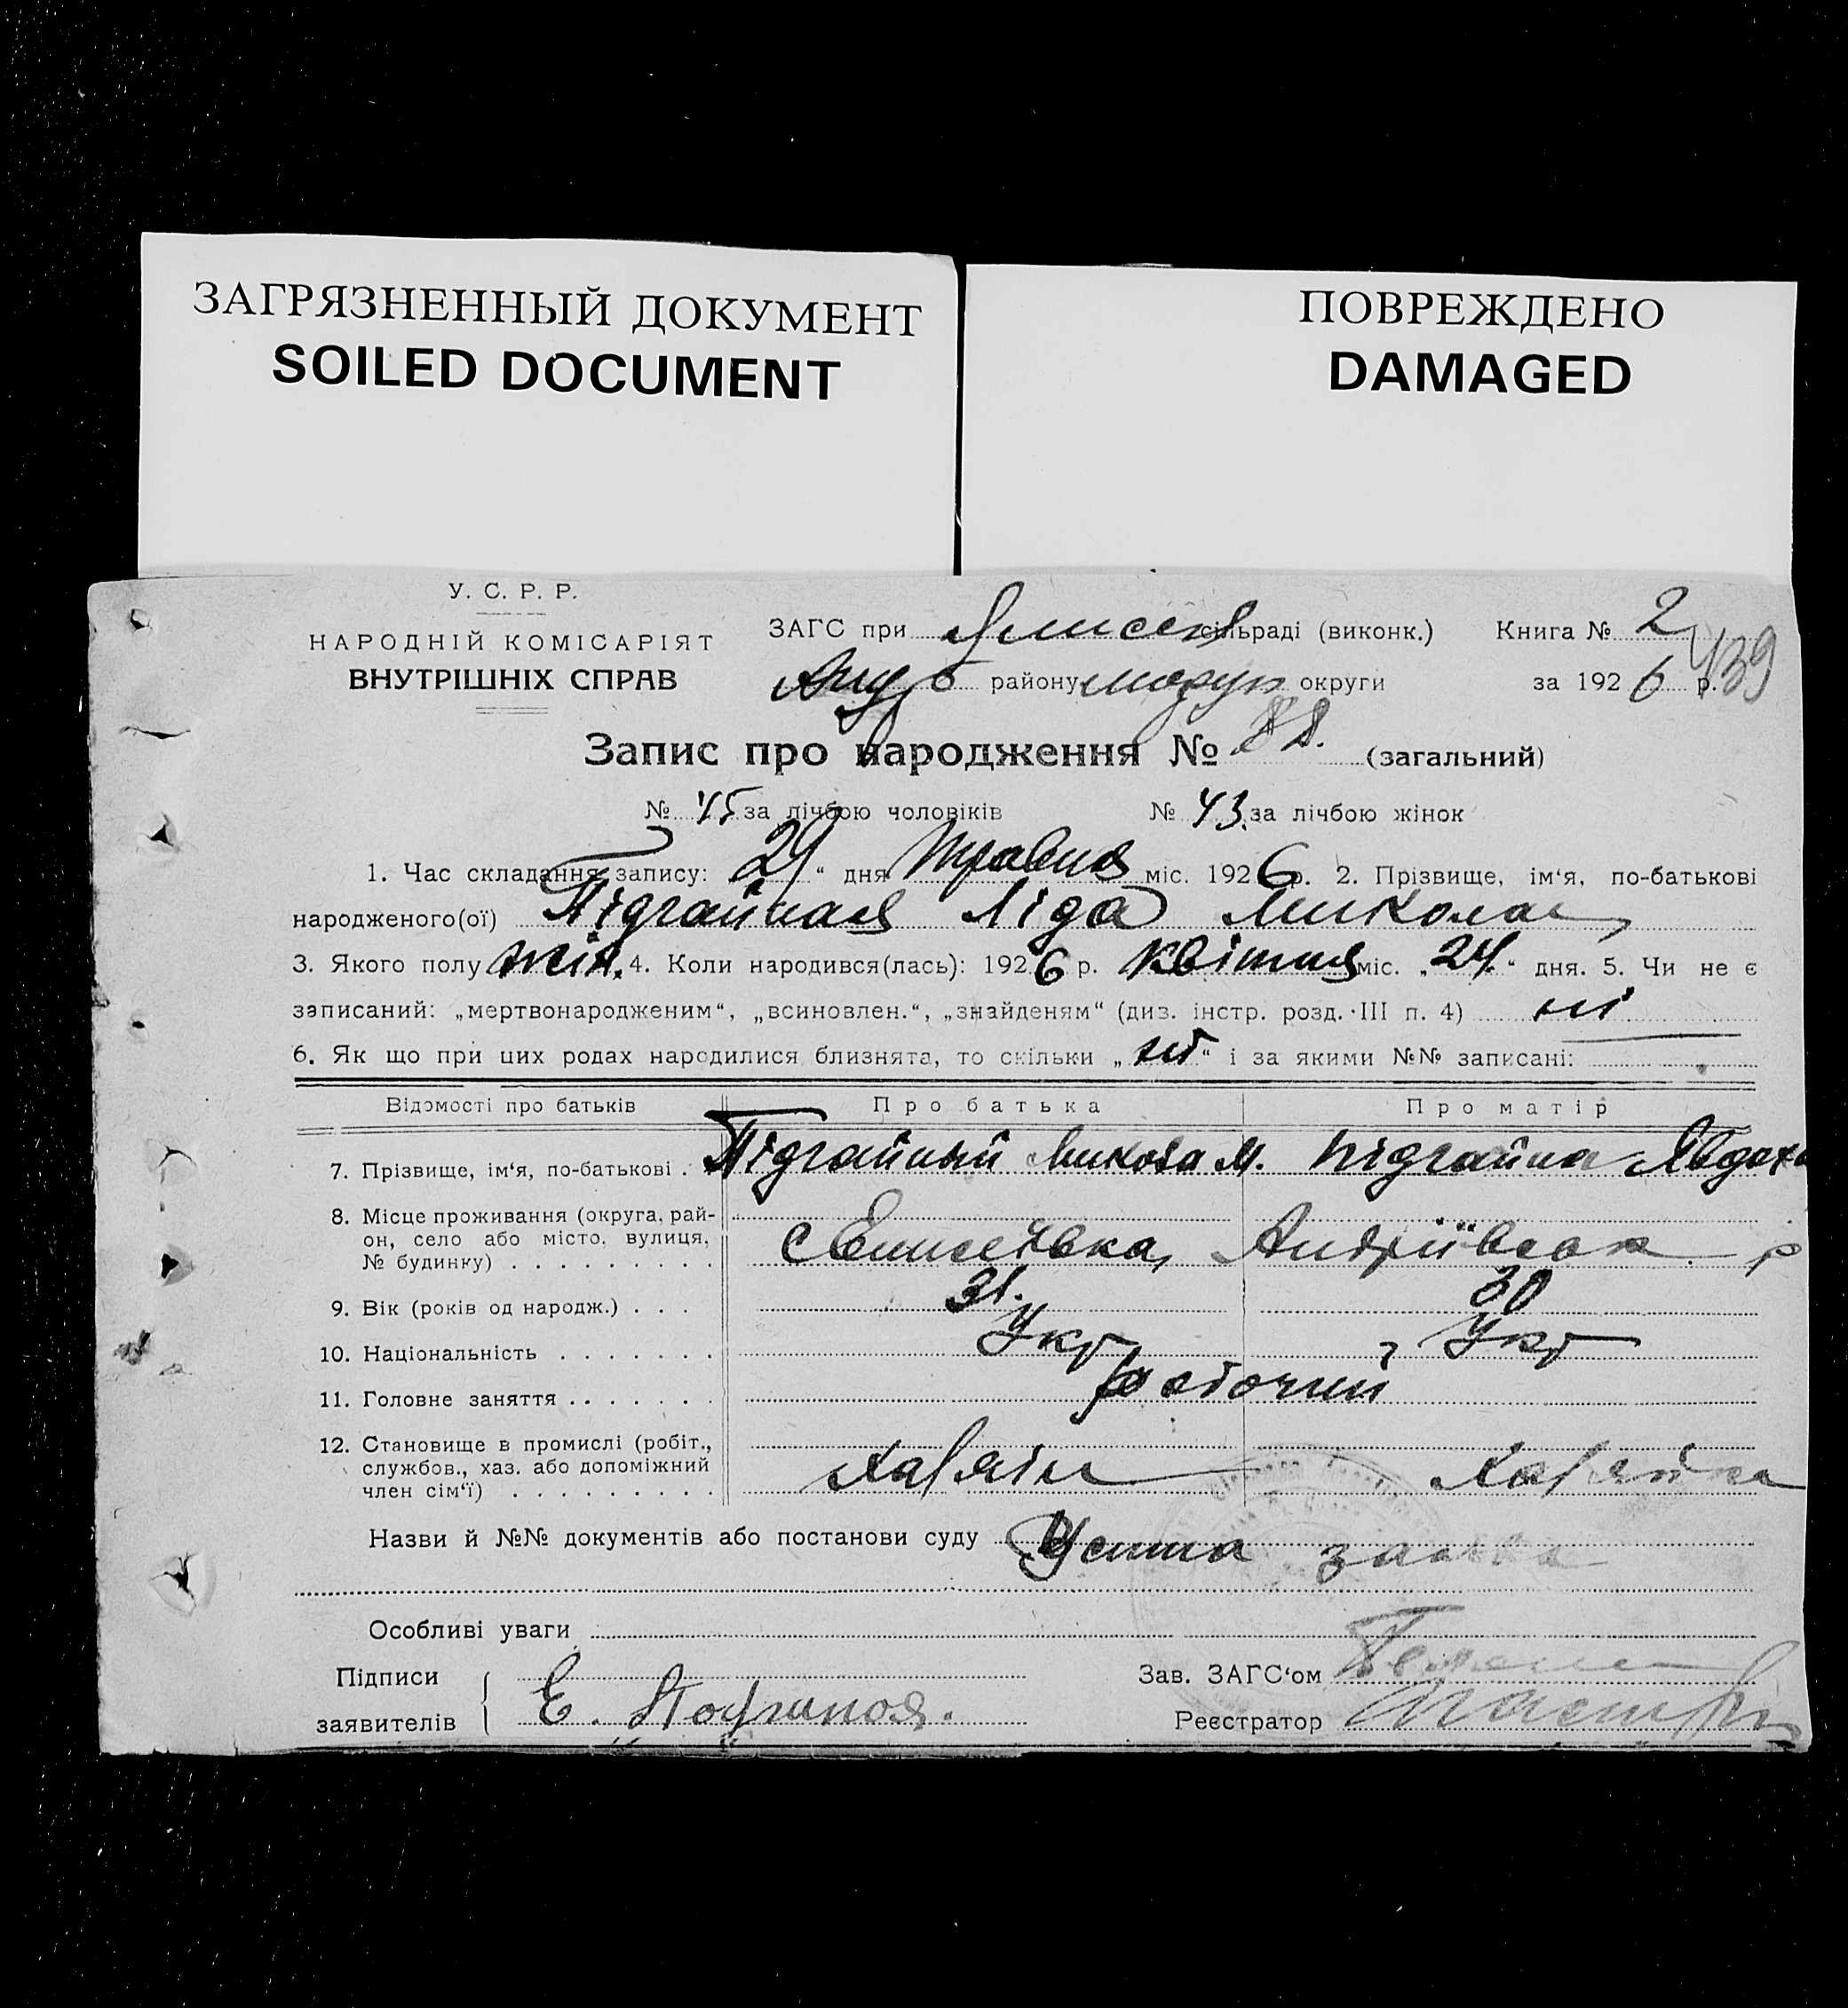 ЗАГРЯЗНЕННЫЙ ДОКУМЕНТ
SOILED DOCUMENT
ПОВРЕЖДЕНО
DAMAGED
У. С. Р. Р.
НАРОДНІЙ КОМІСАРІЯТ
ВНУТРІШНІХ СПРАВ
ЗАГС при сільраді (виконк.) Книга № 2
району округи за 1926 р. 139
Запис про народження № 88. (загальний)
№ 45 за лічбою чоловіків № 43. за лічбою жінок
1. Час складання запису: 24 " дня Травня міс. 1926 р. 2. Прізвище, ім'я, по-батькові
народженого(ої) Підгайная Ліда Микола
3. Якого полу жін. 4. Коли народився(лась): 1926 р. Квітня міс. „24." дня. 5. Чи не є
записаний: „мертвонародженим", „всиновлен.", „знайденям" (диз. інстр. розд. III п. 4) ні
6. Як що при цих родах народилися близнята, то скільки „ " і за якими №№ записані:
Відомості про батьків Про батька Про матір
7. Прізвище, ім'я, по-батькові . Підгайный Микола М. Підгайна Явдох
8. Місце проживання (округа, рай-
он, село або місто, вулиця,
№ будинку) . . . . . . . . . с Елисеївка, Андріївськ р
9. Вік (років од народж.) . . . 31. 30
10. Національність . . . . . . . Укр Укр
11. Головне заняття . . . . . . . робочий
12. Становище в промислі (робіт.,
службов., хаз. або допоміжний
член сім'ї) . . . . . . . . . Хазяін Хазяйка
Назви й №№ документів або постанови суду Усина заява
Особливі уваги
Підписи
заявителів Е.
Зав. ЗАГС'ом
Реєстратор